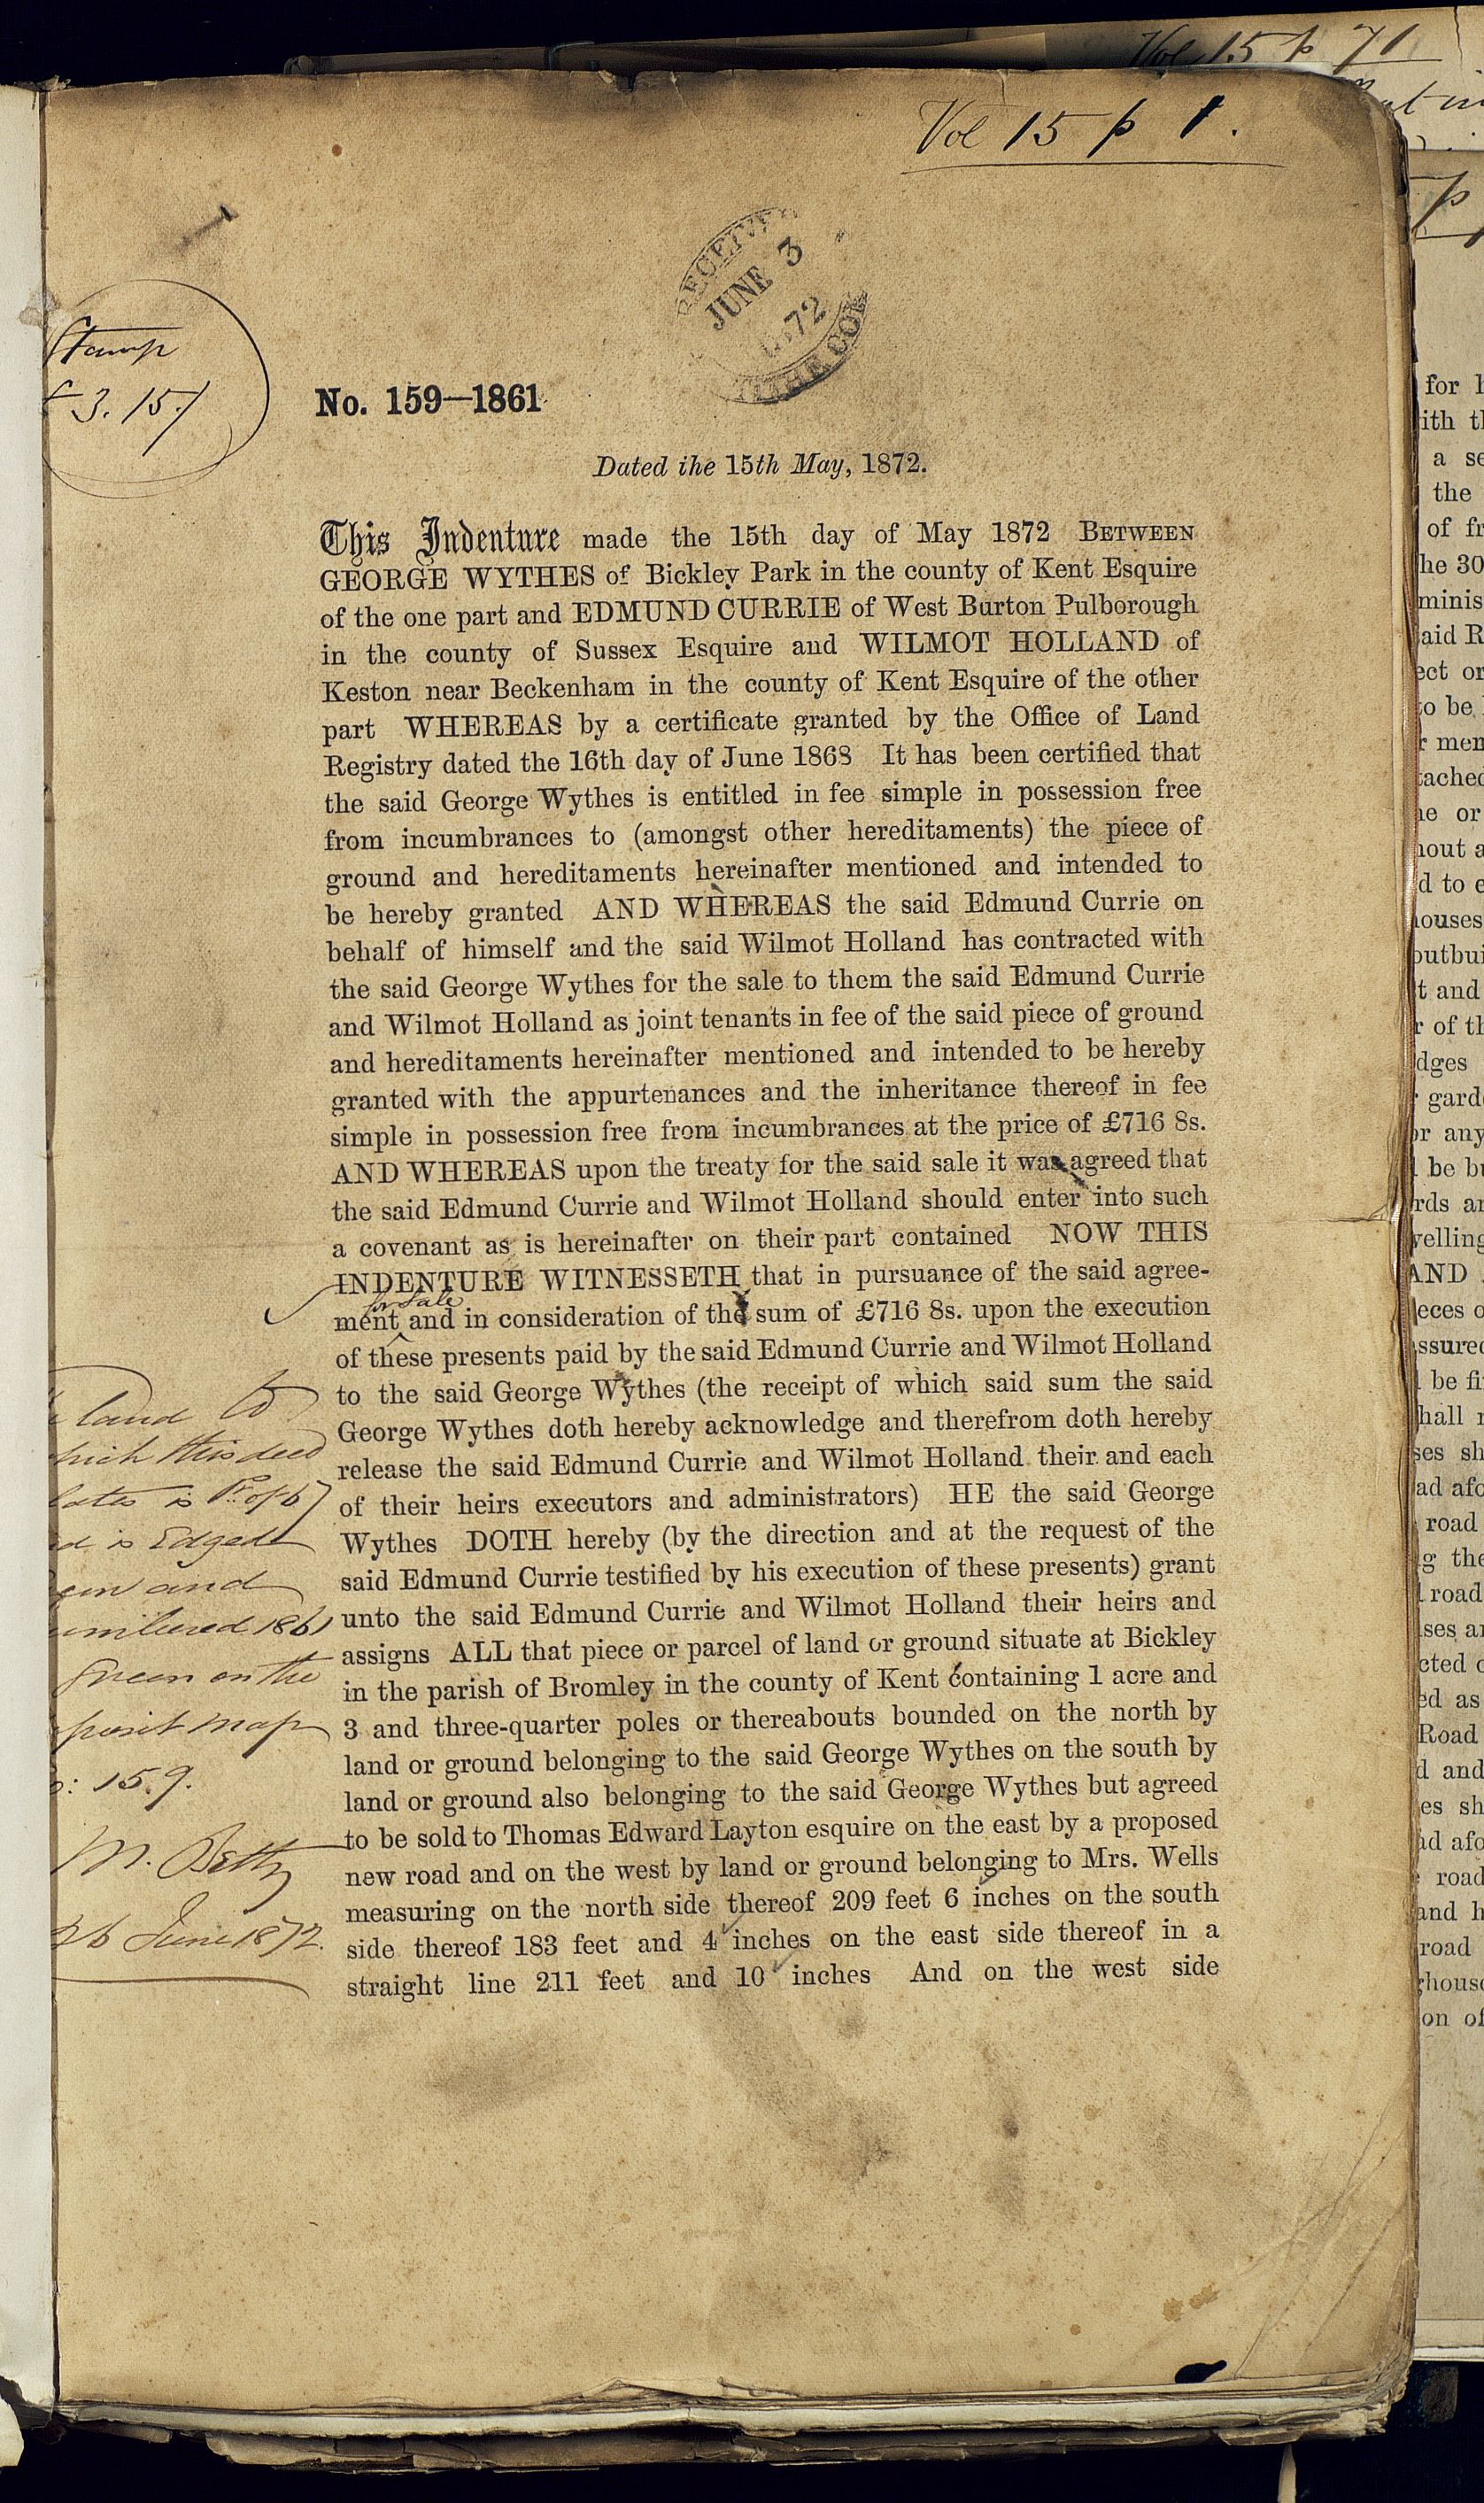 Vol 15 p 71
Vol 15 p 1.
RECEIVED
JUNE 3
1872
Stamp
£3.15/
No. 159—1861
Dated the 15th May, 1872.
This Indenture made the 15th day of May 1872 BETWEEN
GEORGE WYTHES of Bickley Park in the county of Kent Esquire
of the one part and EDMUND CURRIE of West Burton Pulborough
in the county of Sussex Esquire and WILMOT HOLLAND of
Keston near Beckenham in the county of Kent Esquire of the other
part WHEREAS by a certificate granted by the Office of Land
Registry dated the 16th day of June 1868 It has been certified that
the said George Wythes is entitled in fee simple in possession free
from incumbrances to (amongst other hereditaments) the piece of
ground and hereditaments hereinafter mentioned and intended to
be hereby granted AND WHEREAS the said Edmund Currie on
behalf of himself and the said Wilmot Holland has contracted with
the said George Wythes for the sale to them the said Edmund Currie
and Wilmot Holland as joint tenants in fee of the said piece of ground
and hereditaments hereinafter mentioned and intended to be hereby
granted with the appurtenances and the inheritance thereof in fee
simple in possession free from incumbrances at the price of £716 8s.
AND WHEREAS upon the treaty for the said sale it was agreed that
the said Edmund Currie and Wilmot Holland should enter into such
a covenant as is hereinafter on their part contained NOW THIS
INDENTURE WITNESSETH that in pursuance of the said agree-
for sale
ment and in consideration of the sum of £716 8s. upon the execution
of these presents paid by the said Edmund Currie and Wilmot Holland
to the said George Wythes (the receipt of which said sum the said
George Wythes doth hereby acknowledge and therefrom doth hereby
release the said Edmund Currie and Wilmot Holland their and each
of their heirs executors and administrators) HE the said George
Wythes DOTH hereby (by the direction and at the request of the
said Edmund Currie testified by his execution of these presents) grant
unto the said Edmund Currie and Wilmot Holland their heirs and
assigns ALL that piece or parcel of land or ground situate at Bickley
in the parish of Bromley in the county of Kent containing 1 acre and
3 and three-quarter poles or thereabouts bounded on the north by
land or ground belonging to the said George Wythes on the south by
land or ground also belonging to the said George Wythes but agreed
to be sold to Thomas Edward Layton esquire on the east by a proposed
new road and on the west by land or ground belonging to Mrs. Wells
measuring on the north side thereof 209 feet 6 inches on the south
side thereof 183 feet and 4 inches on the east side thereof in a
straight line 211 feet and 10 inches And on the west side
land to
hich this deed
lates is Pt. of 67
d is Edged
een and
umbered 1861
Green on the
posit map
o: 159.
M. Betty
26 June 1872.